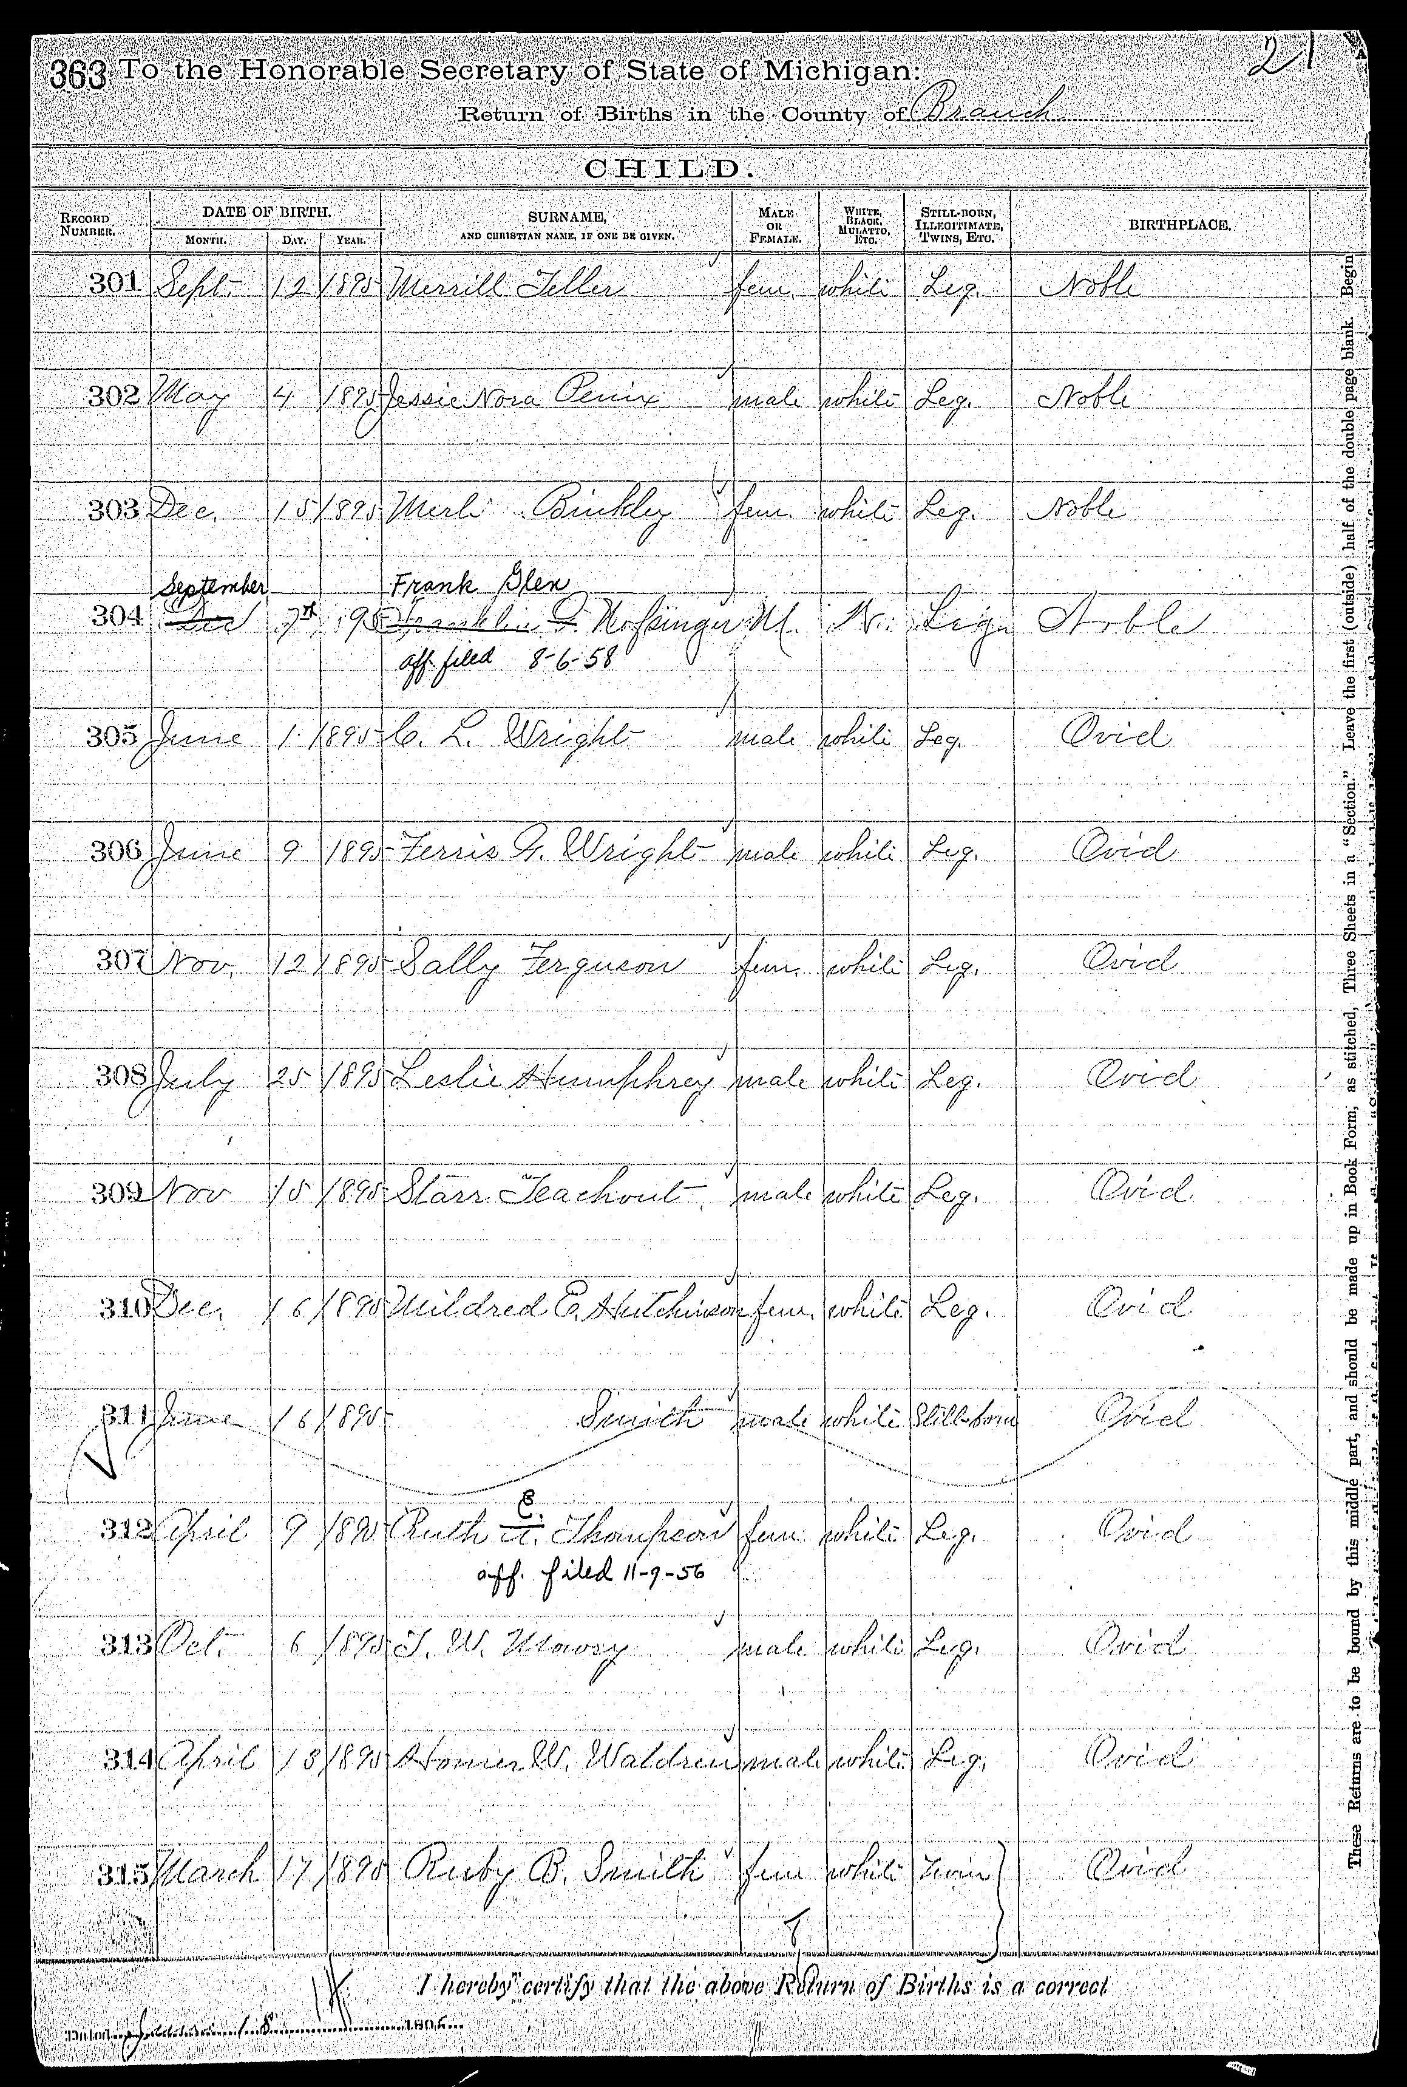 363 To the Honorable Secretary of State of Michigan: 21
Return of Births in the County of Branch
CHILD.
RECORD NUMBER. DATE OF BIRTH. MONTH. DAY. YEAR. SURNAME, AND CHRISTIAN NAME, IF ONE BE GIVEN. MALE OR FEMALE. WHITE, BLACK, MULATTO, ETC. STILL-BORN, ILLEGITIMATE, TWINS, ETC. BIRTHPLACE.
301 Sept. 12 1895 Merrill Teller fem. white Leg. Noble
302 May 4 1895 Jessie Nora Penix male white Leg. Noble
303 Dec. 15 1895 Merli Binkley fem. white Leg. Noble
September Frank Glen
304 Dec 7th 95 Franklin G. Hofsinger M. W. Leg. Noble
aff. filed 8-6-58
305 June 1 1895 C. L. Wright male white Leg. Ovid
306 June 9 1895 Ferris G. Wright male white Leg. Ovid
307 Nov. 12 1895 Sally Ferguson fem. white Leg. Ovid
308 July 25 1895 Leslie Humphrey male white Leg. Ovid
309 Nov 15 1895 Starr Teachout male white Leg. Ovid
310 Dec. 16 1895 Mildred E. Hutchinson fem. white Leg. Ovid
311 June 16 1895 Smith male white Still-born Ovid
E.
312 April 9 1895 Ruth A. Thompson fem white Leg. Ovid
aff. filed 11-9-56
313 Oct. 6 1895 T. W. Mowry male white Leg. Ovid
314 April 13 1895 Homer W. Waldren male white Leg. Ovid
315 March 17 1895 Ruby B. Smith fem white Twin Ovid
I hereby certify that the above Return of Births is a correct
Dated June 18 1896
These Returns are to be bound by this middle part, and should be made up in Book Form, as stitched, Three Sheets in a "Section." Leave the first (outside) half of the double page blank. Begin